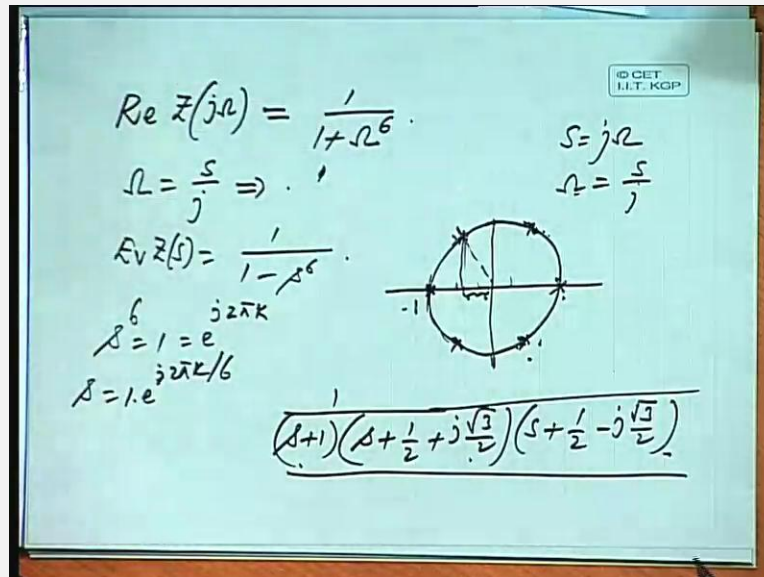 © CET
I.I.T. KGP
Re Z(jΩ) = 1 / (1 + Ω^6).
S = jΩ
Ω = s/j ⇒ .
Ω = s/j
Ev Z(s) = 1 / (1 - s^6).
s^6 = 1 = e^(j2πk)
s = 1.e^(j2πk/6)
-1
1 / (s+1)(s + 1/2 + j√3/2)(s + 1/2 - j√3/2)